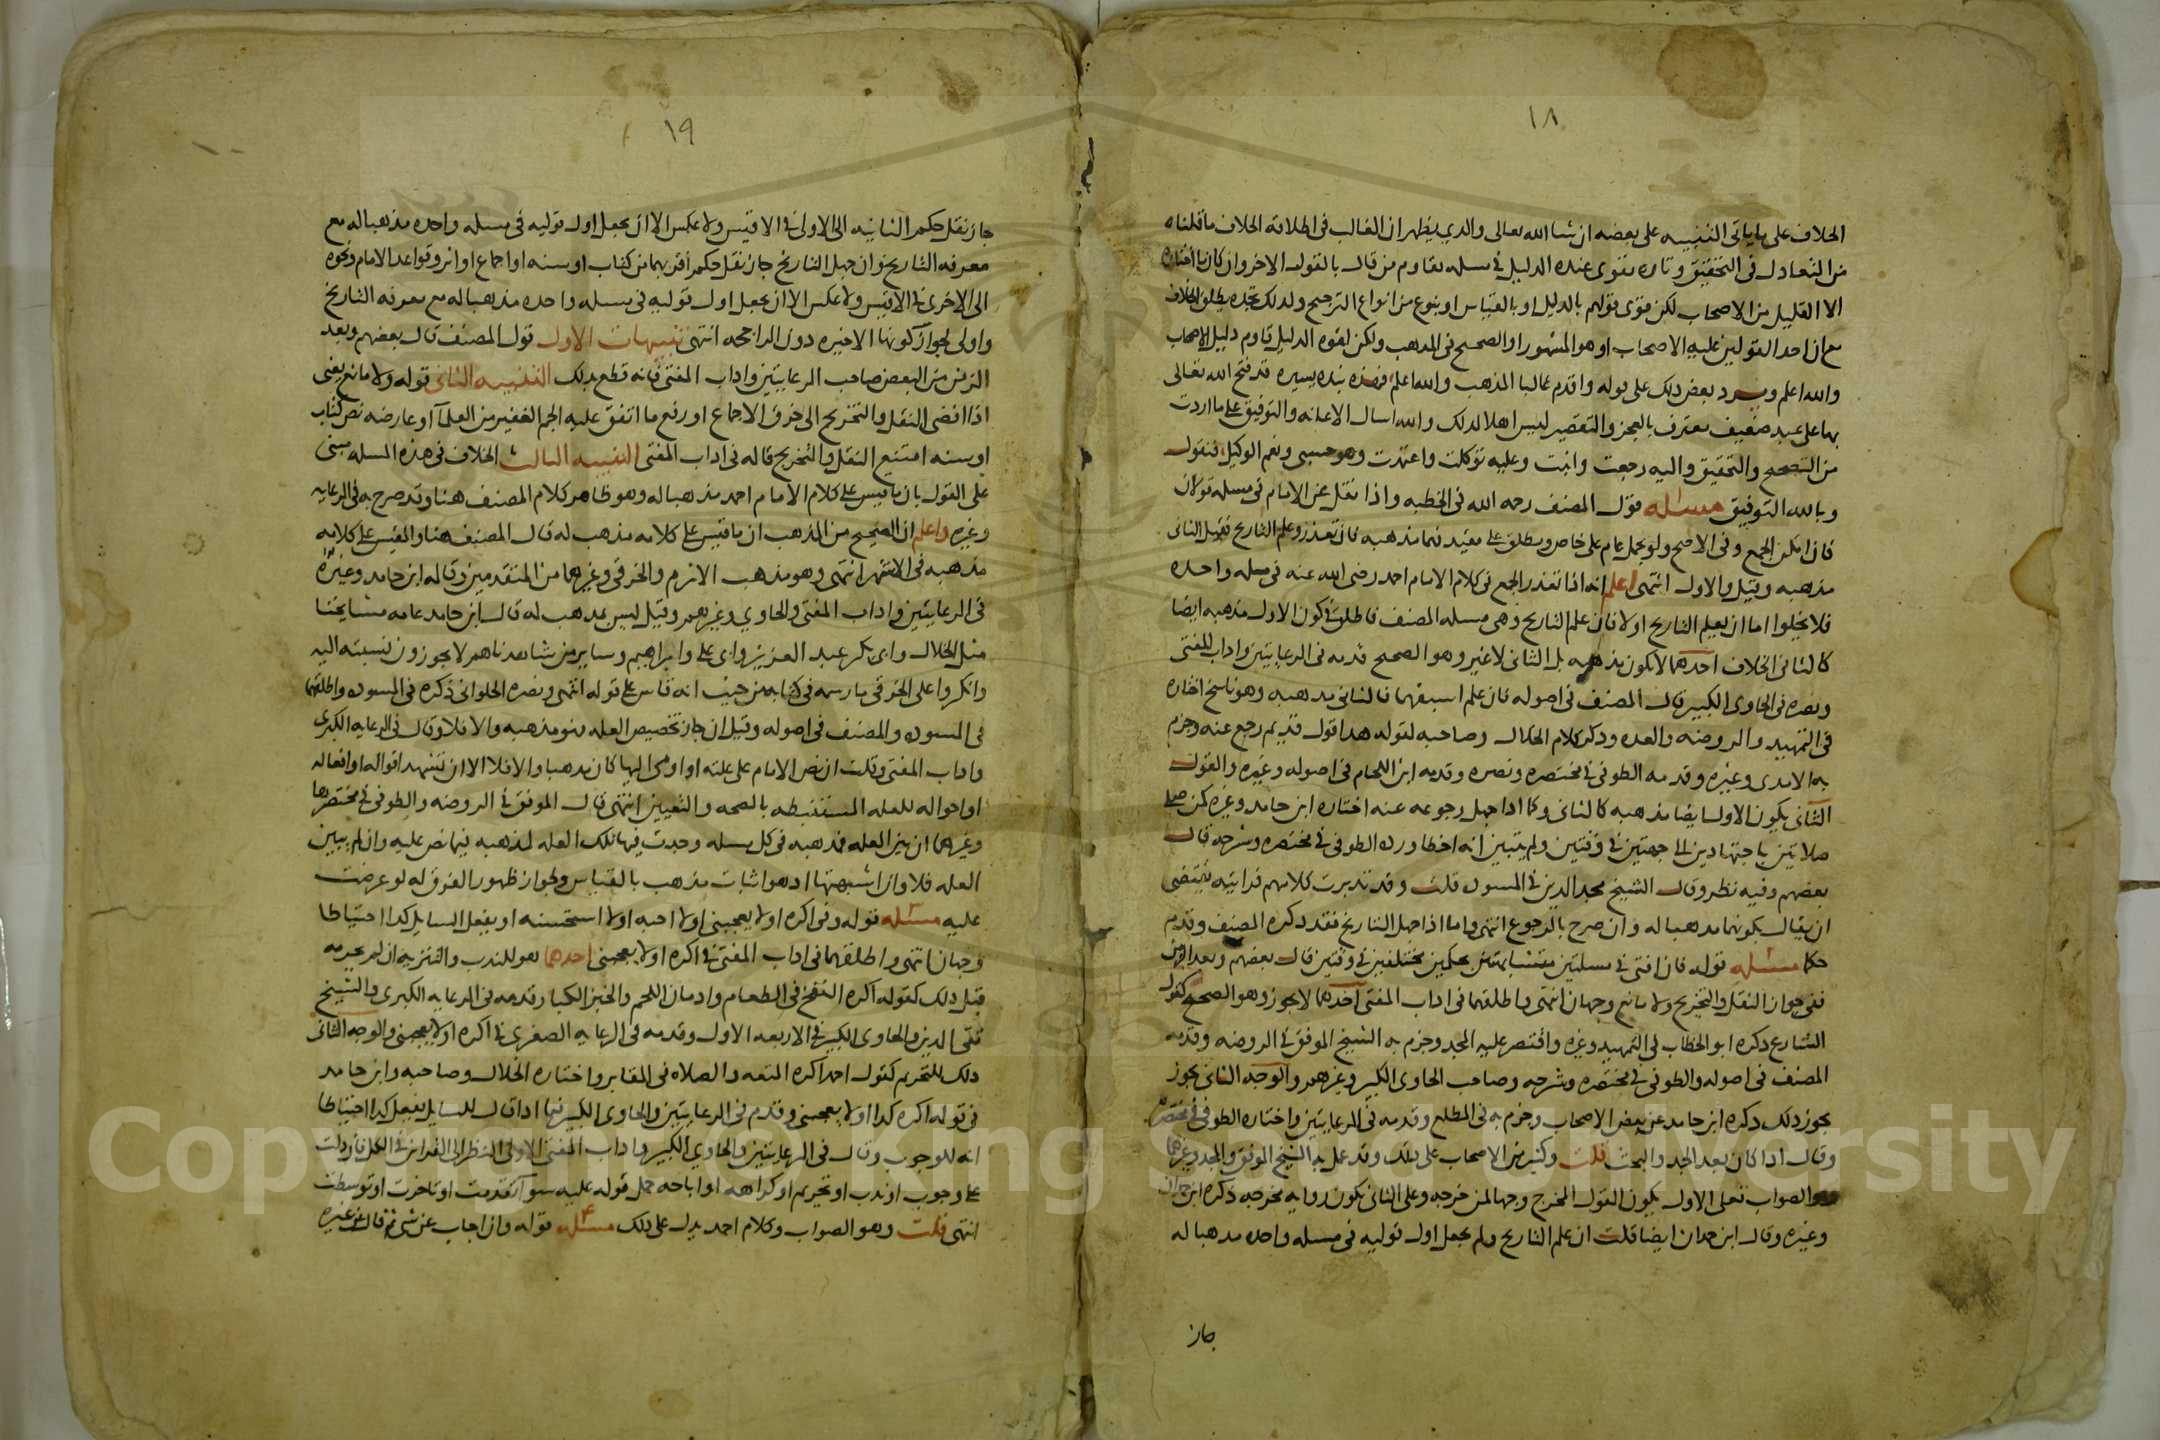 ١٨
الخلاف على ما ياتى التنبيه على بعضه ان شا الله تعالى والذي يظهر ان الغالب فى اطلاقه الخلاف ما قلناه
من التعادل فى التحقيق وتاره يقوى عنده الدليل فى مسله يقاوم من قال بالقول الاخر وان كان ما اختاره
الا القليل من الاصحاب لكن قوى قولهم بالدليل او بالقياس او بنوع من انواع الترجيح ولذلك تجده يطلق الخلاف
مع ان احد القولين عليه الاصحاب او هو المشهور او الصحيح فى المذهب ولكن لقوه الدليل قاوم دليل الاصحاب
والله اعلم وسيرد بعض ذلك على قوله واقدم غالبا المذهب والله اعلم فهذه نبذه يسيره قد فتح الله تعالى
بها على عبد ضعيف معترف بالعجز والتقصير ليس اهلا لذلك والله اسال الاعانه والتوفيق على ما اردت
من التصحيح والتحقيق واليه رجعت وانبت وعليه توكلت واعتمدت وهو حسبى ونعم الوكيل فنقول
وبالله التوفيق مسئله قول المصنف رحمه الله فى الخطبه واذا نقل عن الامام فى مسله قولان
فان امكن الجمع وفى الاصح ولو بحمل عام على خاص ومطلق على مقيد فهما مذهبه فان تعذر وعلم التاريخ فقيل الثانى
مذهبه وقيل والاول انتهى اعلم انه اذا تعذر الجمع فى كلام الامام احمد رضى الله عنه فى مسله واحده
فلا يخلوا اما ان يعلم التاريخ او لا فان علم التاريخ وهى مسله المصنف فاطلق فى كون الاول مذهبه ايضا
كالثانى الخلاف احدهما لا يكون مذهبه بل الثانى لا غير وهو الصحيح قدمه فى الرعايتين واداب المفتى
ونصره فى الحاوى الكبير قال المصنف فى اصوله فان علم اسبقهما فالثانى مذهبه وهو ناسخ اختاره
فى التمهيد والروضه والعده وذكر كلام الخلال وصاحبه لقوله هذا قول قديم رجع عنه وجزم
به الامدى وغيره وقدمه الطوفى فى مختصره ونصره وقدمه ابن اللحام فى اصوله وغيره والقول
الثانى يكون الاول ايضا مذهبه كالثانى وكما اذا جهل رجوعه عنه اختاره ابن حامد وغيره كمن صلى
صلاتين باجتهادين الى جهتين فى وقتين ولم يتبين انه اخطا ورده الطوفى فى مختصره وشرحه قال
بعضهم وفيه نظر وقال الشيخ مجد الدين فى المسوده قلت وقد تدبرت كلامهم فرايته يقتضى
ان يقال بكونهما مذهبا له وان صرح بالرجوع انتهى واما اذا جهل التاريخ فقد ذكره المصنف وقدم
حكما مسئله قوله فان افتى فى مسلتين متشابهتين بحكمين مختلفين فى وقتين قال بعضهم وبعد الزمن
ففى جواز النقل والتخريج ولا مانع وجهان انتهى واطلقهما فى اداب المفتى احدهما لا يجوز وهو الصحيح كقول
الشارع ذكره ابو الخطاب فى التمهيد وغيره واقتصر عليه المجد وجزم به الشيخ الموفق فى الروضه وقدمه
المصنف فى اصوله والطوفى فى مختصره وشرحه وصاحب الحاوى الكبير وغيرهم والوجه الثانى يجوز
يجوز ذلك ذكره ابن حامد عن بعض الاصحاب وجزم به فى المطلع وقدمه فى الرعايتين واختاره الطوفى فى مختصره
وقال اذا كان بعد الجد والبحث قلت وكثير من الاصحاب على ذلك وقد عمل به الشيخ الموفق والمجد وغيرهما
وهو الصواب فعلى الاول يكون القول المخرج وجها لمن خرجه وعلى الثانى يكون روايه مخرجه ذكره ابن حمدان
وغيره وقال ابن حمدان ايضا قلت ان علم التاريخ ولم يجعل اول قوليه فى مسله واحده مذهبا له
جاز
١٩
جاز نقل حكم الثانيه الى الاولى فى الاقيس ولا عكس الا ان يجعل اول قوليه فى مسله واحده مذهبا له مع
معرفه التاريخ وان جهل التاريخ جاز نقل حكم اقربهما من كتاب او سنه او اجماع او اثر وقواعد الامام ونحوه
الى الاخرى فى الاقيس ولا عكس الا ان يجعل اول قوليه فى مسله واحده مذهبا له مع معرفه التاريخ
واولى لجواز كونها الاخيره دون الراجحه انتهى تنبيهات الاول قول المصنف قال بعضهم وبعد
الزمن من البعض صاحب الرعايتين واداب المفتى فانه قطع بذلك التنبيه الثانى قوله ولا مانع يعنى
اذا افضى النقل والتخريج الى خرق الاجماع او رفع ما اتفق عليه الجم الغفير من العلما او عارضه نص كتاب
او سنه امتنع النقل والتخريج قاله فى اداب المفتى التنبيه الثالث الخلاف فى هذه المسله مبنى
على القول بان ما قيس على كلام الامام احمد مذهبا له وهو ظاهر كلام المصنف هنا وقد صرح به فى الرعايه
وغيره واعلم ان الصحيح من المذهب ان ما قيس على كلامه مذهب له قال المصنف هنا والمقيس على كلامه
مذهبه فى الاشهر انتهى وهو مذهب الاثرم والخرقى وغيرهما من المتقدمين وقاله ابن حامد وغيره
فى الرعايتين واداب المفتى والحاوى وغيرهم وقيل ليس بمذهب له قال ابن حامد عامه مشايخنا
مثل الخلال وابى بكر عبد العزيز وابى على وابراهيم وساير من شاهدناهم لا يجوزون نسبته اليه
وانكروا على الخرقى ما رسمه فى كتابه من حيث انه قاس على قوله انتهى ونصره الحلوانى ذكره فى المسوده واطلقهما
فى المسوده والمصنف فى اصوله وقيل ان جاز تخصيص العله فهو مذهبه والا فلا وقال فى الرعايه الكبرى
واداب المفتى وقلت ان نص الامام على علته او اومى اليها كان مذهبا والا فلا الا ان تشهد اقواله او افعاله
او احواله للعله المستنبطه بالصحه والتعيين انتهى قال الموفق فى الروضه والطوفى فى مختصرها
وغيرهما ان بين العله فمذهبه فى كل مسله وجدت فيها تلك العله كمذهبه فيما نص عليه وان لم يبين
العله فلا وان اشبهتها اذ هو اثبات مذهب بالقياس ولجواز ظهور الفرق له لو عرضت
عليه مسئله قوله وفى اكره او لا يعجبنى او لا احبه او لا استحسنه او يفعل السايل كذا احتياطا
وجهان انتهى واطلقهما فى اداب المفتى فى اكره او لا يعجبنى احدهما هو للندب والتنزيه ان لم يحرمه
قبل ذلك كقوله اكره النفخ فى الطعام وادمان اللحم والخبز الكبار قدمه فى الرعايه الكبرى والشيخ
تقى الدين والحاوى الكبير فى الاربعه الاول وقدمه فى الرعايه الصغرى فى اكره او لا يعجبنى والوجه الثانى
ذلك للتحريم كقول احمد اكره المتعه والصلاه فى المقابر واختاره الخلال وصاحبه وابن حامد
فى قوله اكره كذا او لا يعجبنى وقدم فى الرعايتين والحاوى الكبير فيما اذا قال للسايل يفعل كذا احتياطا
انه للوجوب وقال فى الرعايتين والحاوى الكبير واداب المفتى الاولى النظر الى القراين فى الكل فان دلت
على وجوب او ندب او تحريم او كراهه او اباحه حمل قوله عليه سوا تقدمت او تاخرت او توسطت
انتهى قلت وهو الصواب وكلام احمد يدل على ذلك مسئله قوله وان اجاب عن شى ثم قال عن غيره
Copyright © King Saud University